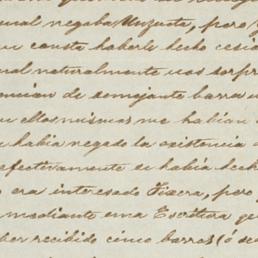 nal negaba Unzueta, pero
me conste haberle hecho cesió
nal naturalmente nos sorpr
encian de semejante barra
Ellos mismos me habian
habia negado la existencia
efectivamente si había
era interesado Viscra, pero
mediante una Escritura que
ber recibido cinco barras (ó se